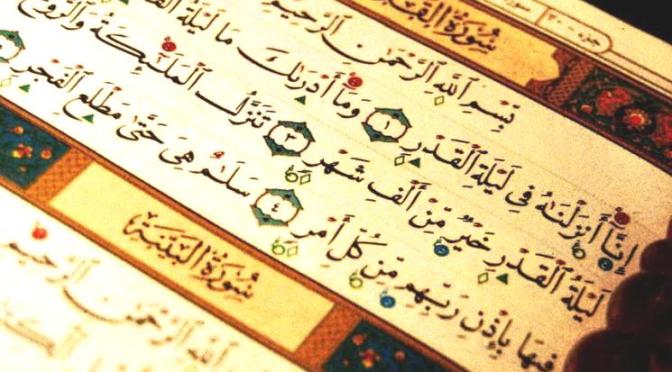 جزء ٣٠ سورة
سورة القدر
بِسْمِ ٱللَّهِ ٱلرَّحْمَٰنِ ٱلرَّحِيمِ
إِنَّآ أَنزَلْنَٰهُ فِى لَيْلَةِ ٱلْقَدْرِ ١ وَمَآ أَدْرَىٰكَ مَا لَيْلَةُ
لَيْلَةُ ٱلْقَدْرِ خَيْرٌ مِّنْ أَلْفِ شَهْرٍ ٣ تَنَزَّلُ ٱلْمَلَٰٓئِكَةُ وَٱلرُّوحُ
فِيهَا بِإِذْنِ رَبِّهِم مِّن كُلِّ أَمْرٍ ٤ سَلَٰمٌ هِىَ حَتَّىٰ مَطْلَعِ ٱلْفَجْرِ
سُورَةُ البَيِّنَةِ
ٱللَّهِ ٱلرَّحْمَٰنِ ٱلرَّحِيمِ